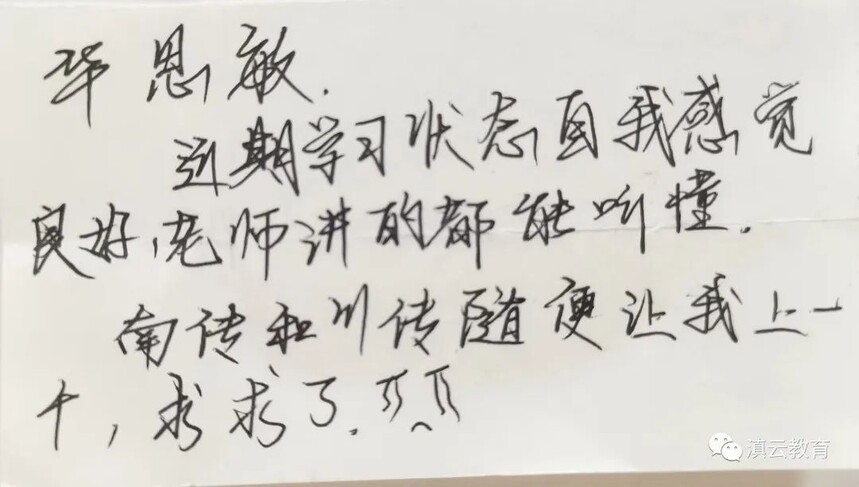 华恩敏.
近期学习状态自我感觉
良好,老师讲的都能听懂.
南传和川传随便让我上一
个,求求了.
滇云教育